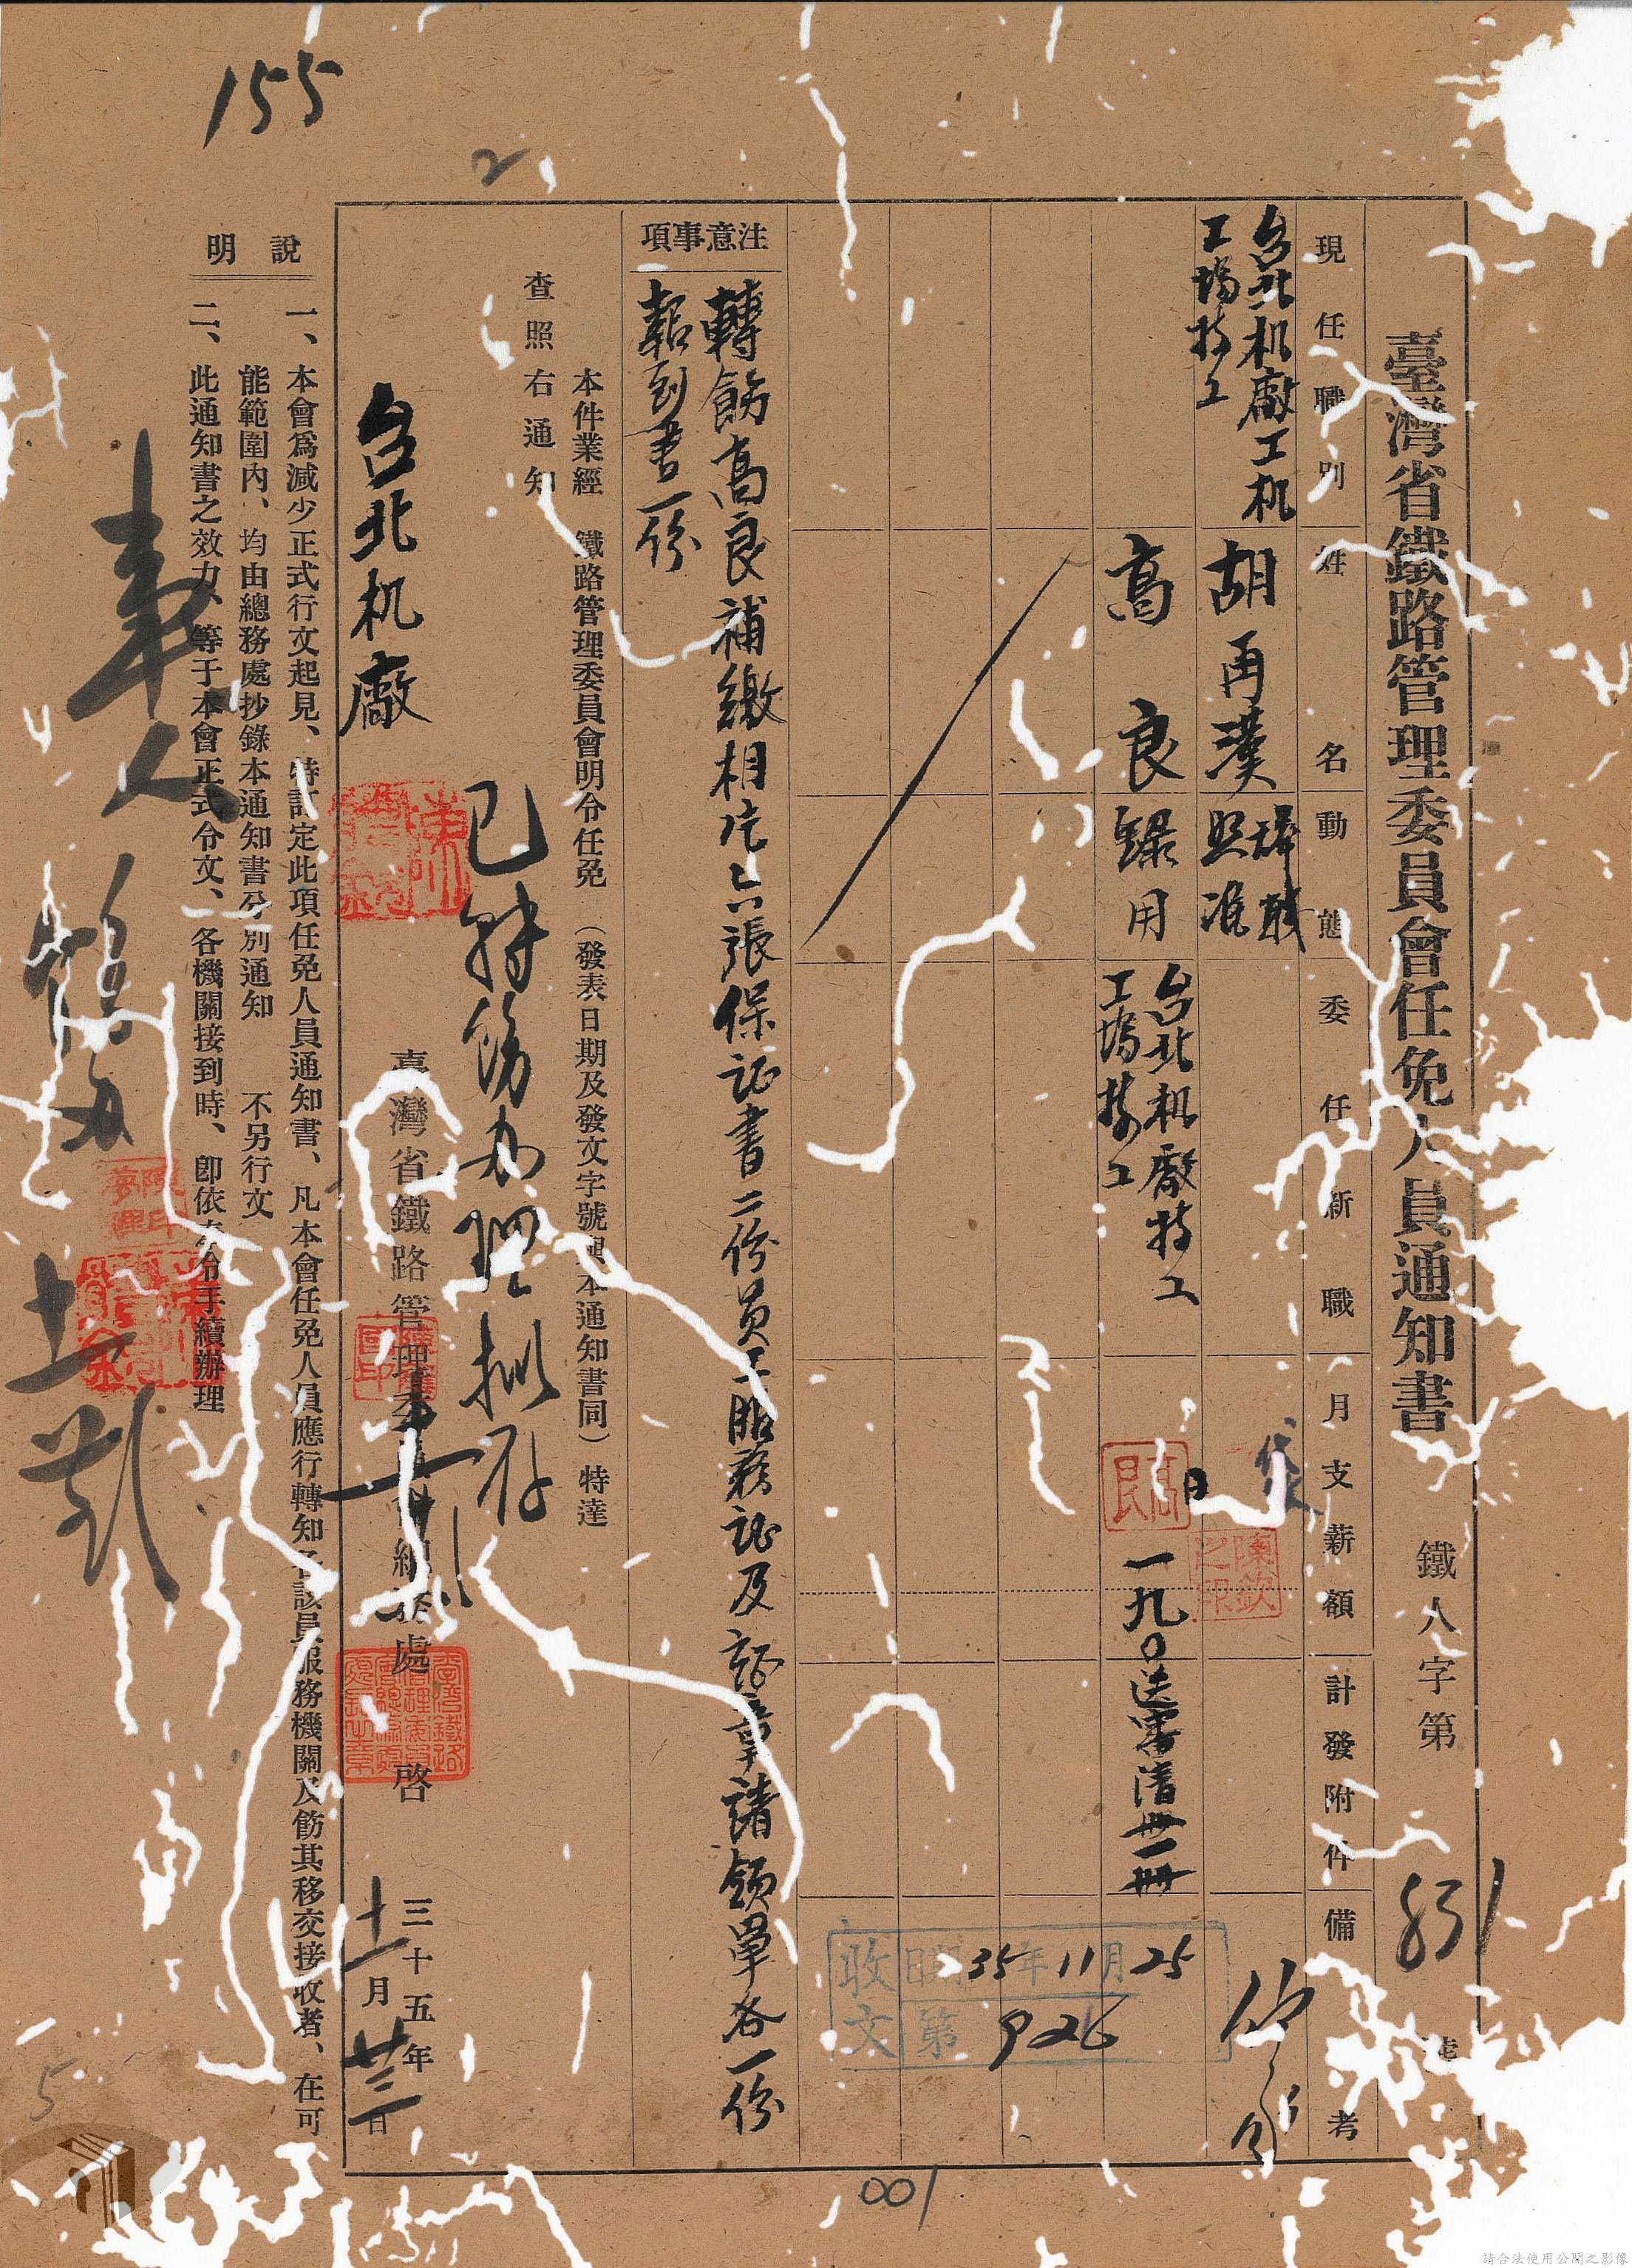 臺灣省鐵路管理委員會任免人員通知書
鐵人字第 851
現任職別
姓名
動態
委任新職
月支薪額
計發附件
備考
台北机廠工机
工場技工
胡再漢
辞職
照准
高良
錄用
台北机廠技工
工場技工
一九〇
送審清冊一冊
注意事項
轉飭高良補繳相片六張保证書二份員工服務证及證章請領單各一份
報到書一份
本件業經 鐵路管理委員會明令任免(發表日期及發文字號與本通知書同)特達
查照右通知
台北机廠
已轉飭办理擬存
臺灣省鐵路管理委員會總務處 啓
三十五年
十一月廿三日
說明
一、本會爲減少正式行文起見、特訂定此項任免人員通知書、凡本會任免人員應行轉知各該員服務機關及飭其移交接收者、在可
能範圍內、均由總務處抄錄本通知書分別通知 不另行文
二、此通知書之效力、等于本會正式令文、各機關接到時、卽依本令手續辦理
收文
日期 35年11月25
第 926
高良
陳欽之印
155
2
5
001
請合法使用公開之影像